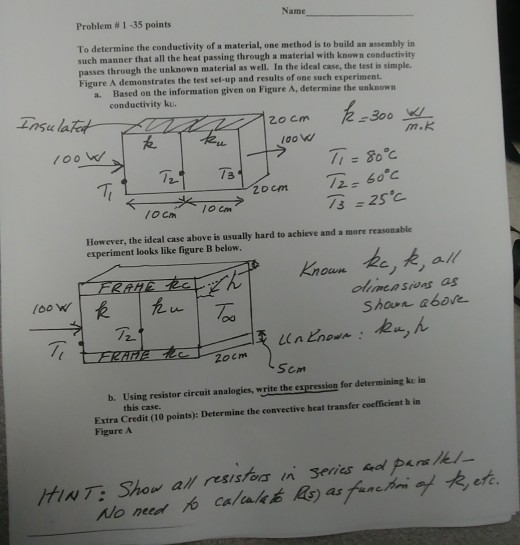 Name
Problem # 1 -35 points
To determine the conductivity of a material, one method is to build an assembly in
such manner that all the heat passing through a material with known conductivity
passes through the unknown material as well. In the ideal case, the test is simple.
Figure A demonstrates the test set-up and results of one such experiment.
a. Based on the information given on Figure A, determine the unknown
conductivity ku.
Insulated
100 W
k
ku
T1
T2
T3
20 cm
100 W
20 cm
10 cm
10 cm
k = 300 W/m.K
T1 = 80°C
T2 = 60°C
T3 = 25°C
However, the ideal case above is usually hard to achieve and a more reasonable
experiment looks like figure B below.
FRAME kc
h
100 W
k
ku
T∞
T1
T2
FRAME kc
20 cm
5 cm
Known kc, k, all
dimensions as
shown above
Unknown: ku, h
b. Using resistor circuit analogies, write the expression for determining ku in
this case.
Extra Credit (10 points): Determine the convective heat transfer coefficient h in
Figure A
HINT: Show all resistors in series and parallel-
No need to calculate R(s) as function of k, etc.